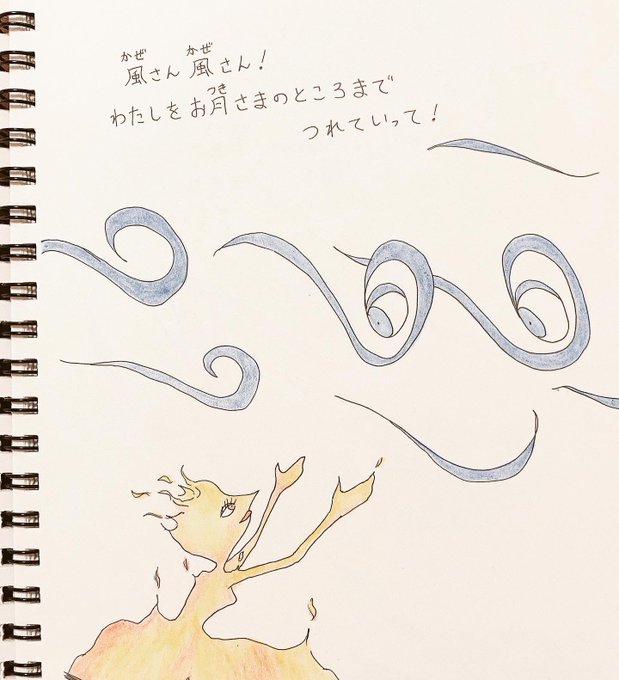 風さん 風さん!
わたしをお月さまのところまで
つれていって!
かぜ
かぜ
つき